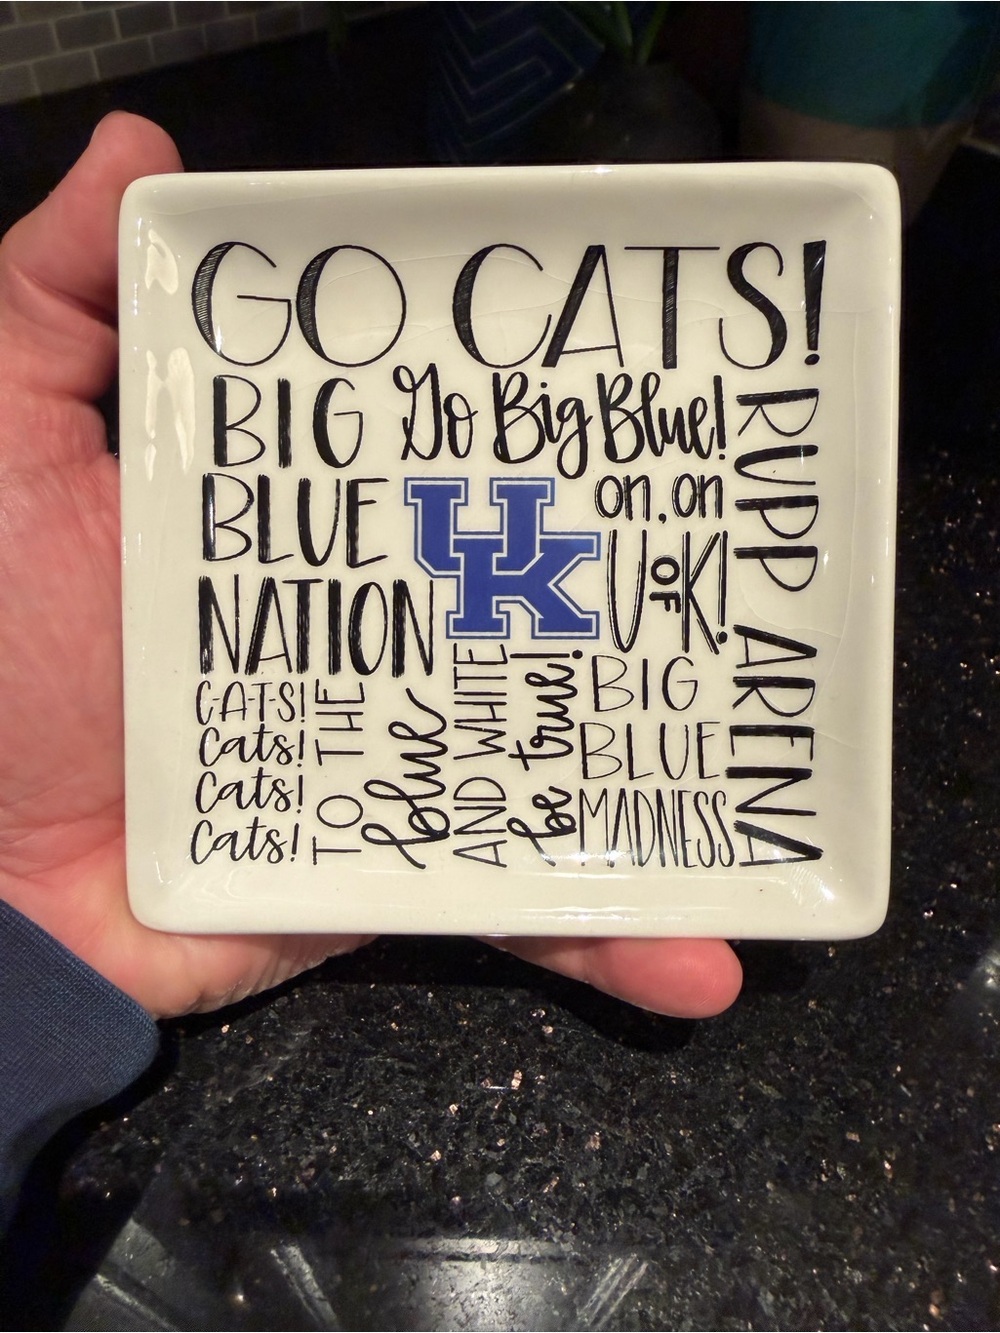 GO CATS!
BIG
Go Big Blue!
BLUE
NATION
UK
on, on
U OF K!
RUPP ARENA
C-A-T-S!
Cats!
Cats!
Cats!
TO THE
blue
AND WHITE
be true!
BIG
BLUE
MADNESS